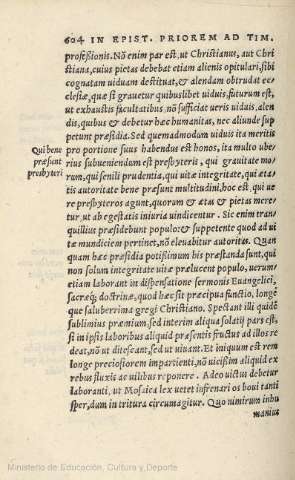 604 IN EPIST. PRIOREM AD TIM.
professionis. Nõ enim par est, ut Christianus, aut Chri
stiana, cuius pietas debebat etiam alienis opitulari, sibi
cognatam uiduam destituat, & alendam obtrudat ec-
clesiæ, quæ si grauetur quibuslibet uiduis, futurum est,
ut exhaustis facultatibus nõ sufficiat ueris uiduis, alen
dis, quibus & debetur hæc humanitas, nec aliunde sup
petunt præsidia. Sed quemadmodum uiduis ita meritis
pro portione suus habendus est honos, ita multo ube-
Qui bene
rius subueniendum est presbyteris, qui grauitate mo-
præsunt
rum, qui senili prudentia, qui uitæ integritate, qui æta-
presbyteri
tis autoritate bene præsunt multitudini, hoc est, qui ue
re presbyteros agunt, quorum & ætas & pietas mere-
tur, ut ab egestatis iniuria uindicentur. Sic enim tran-
quillius præsidebunt populo: & suppetente quod ad ui
tæ mundiciem pertinet, nõ eleuabitur autoritas. Quan
quam hæc præsidia potissimum his præstanda sunt, qui
non solum integritate uitæ prælucent populo, uerum
etiam laborant in dispensatione sermonis Euangelici,
sacræq; doctrinæ, quod hæc sit præcipua functio, longe
que saluberrima gregi Christiano. Spectant illi quidẽ
sublimius præmium, sed interim aliqua solatij pars est,
si in ipsis laboribus aliquid præsentis fructus ad illos re
deat, nõ ut ditescant, sed ut uiuant. Et iniquum est rem
longe preciosiorem impartienti, nõ uicissim aliquid ex
rebus fluxis ac uilibus reponere. Adeo uictus debetur
laboranti, ut Mosaica lex uetet infrenari os boui tanti
sper, dum in tritura circumagitur. Quo nimirum inhu
manius
Ministerio de Educación, Cultura y Deporte